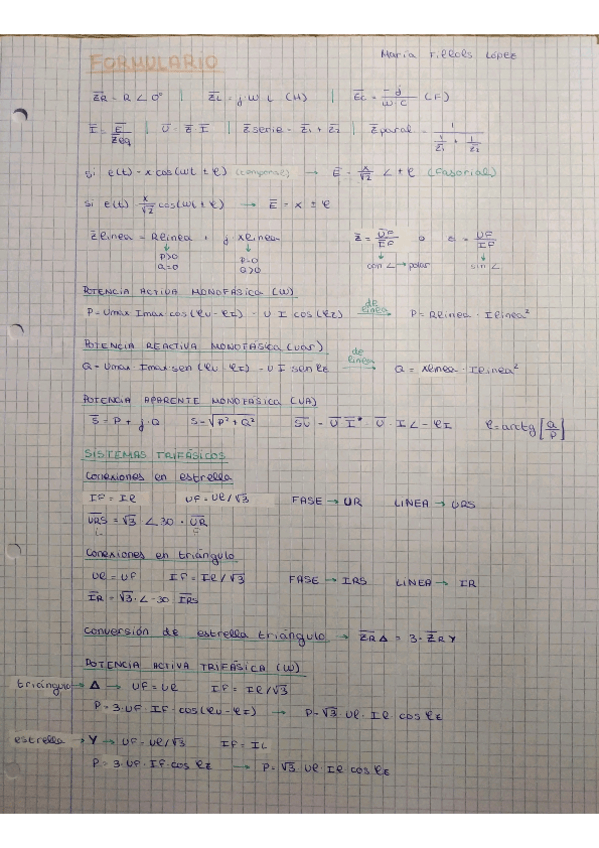 FORMULARIO
María Tillols López
Z̅R = R ∠ 0° | Z̅L = j W L (H) | Z̅c = -j / W·C (F)
I̅ = E̅ / Z̅eq | U̅ = Z̅ I̅ | Z̅serie = Z̅1 + Z̅2 | Z̅paral = 1 / (1/Z̅1 + 1/Z̅2)
si e(t) = x cos(wt ± φ) (temporal) → E̅ = x/√2 ∠ ± φ (Fasorial)
si e(t) · x/√2 cos(wt ± φ) → E̅ = x ± φ
Z̅línea = Rlínea + j Xlínea Z̅ = U̅F / I̅F o Z = UF / IF
↓ ↓ ↓ ↓
P>0 P=0 con ∠ → polar sin ∠
Q=0 Q>0
POTENCIA ACTIVA MONOFÁSICA (W)
P = Umax Imax cos(φU - φI) = U I cos(φZ) de línea → P = Rlínea · Ilínea²
POTENCIA REACTIVA MONOFÁSICA (Var)
Q = Umax · Imax sen (φU - φI) = U I sen φZ de línea → Q = Xlínea · Ilínea²
POTENCIA APARENTE MONOFÁSICA (VA)
S̅ = P + j·Q S = √P² + Q² S̅U = U̅ I̅* · U̅ · I ∠ - φI φ = arctg [Q/P]
SISTEMAS TRIFÁSICOS
Conexiones en estrella
IF = Il UF = Ul/√3 FASE → UR LINEA → URS
U̅RS = √3 ∠ 30 · U̅R
L F
Conexiones en triángulo
Ul = UF IF = Il/√3 FASE → IRS LINEA → IR
I̅R = √3 · ∠ -30 I̅RS
Conversión de estrella triángulo → Z̅R Δ = 3 · Z̅R Y
POTENCIA ACTIVA TRIFÁSICA (W)
triángulo → Δ → UF = Ul IF = Il/√3
P = 3 · UF · IF · cos(φU - φI) → P = √3 · Ul · Il cos φZ
estrella → Y → UF = Ul/√3 IF = IL
P = 3 · UF · IF · cos φZ → P = √3 Ul Il cos φZ